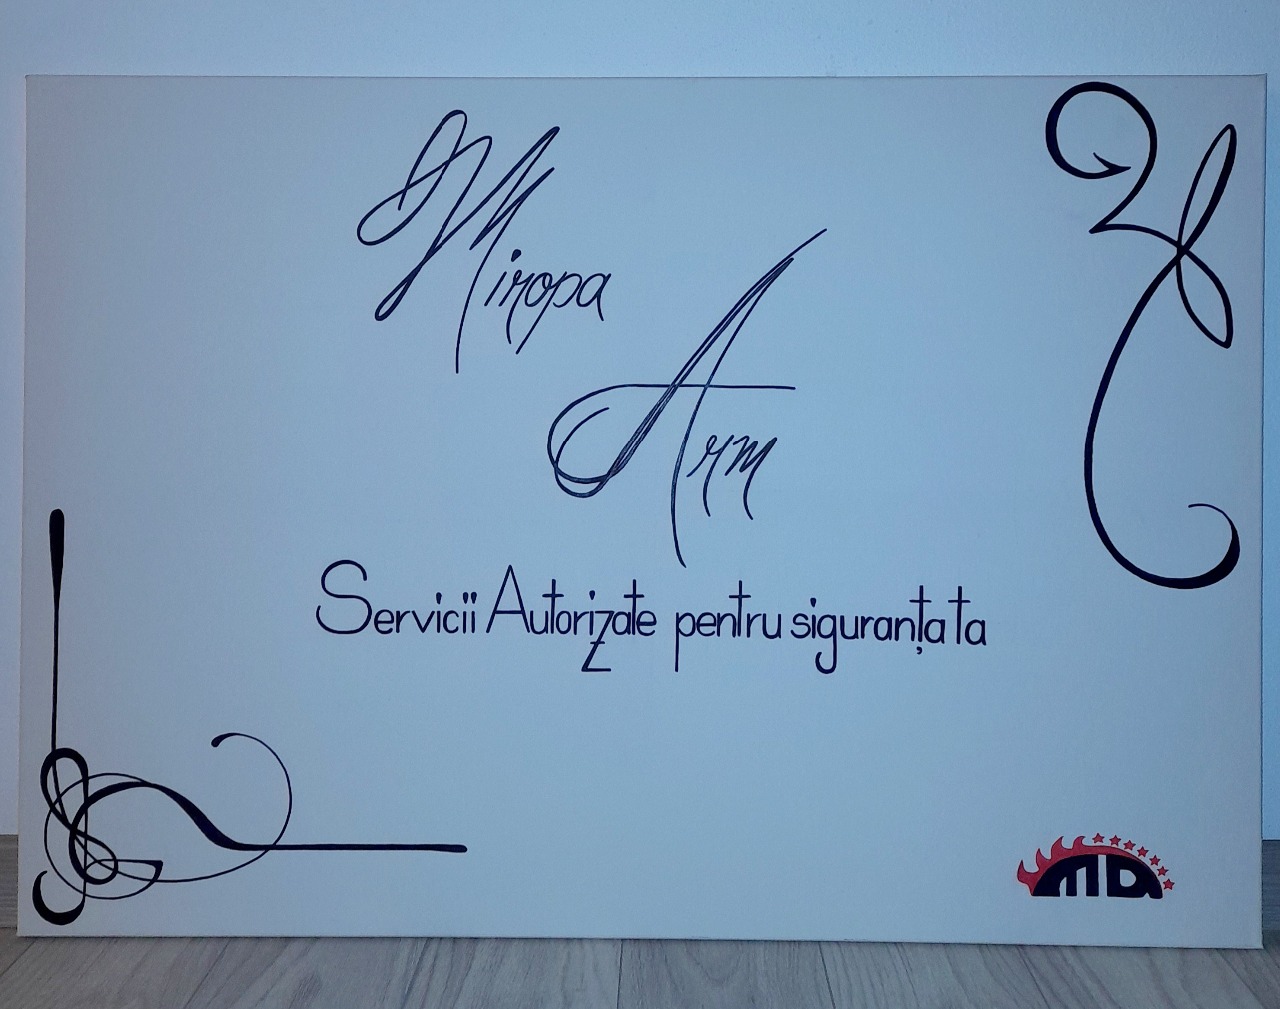 Miropa
Arm
Servicii Autorizate pentru siguranța ta